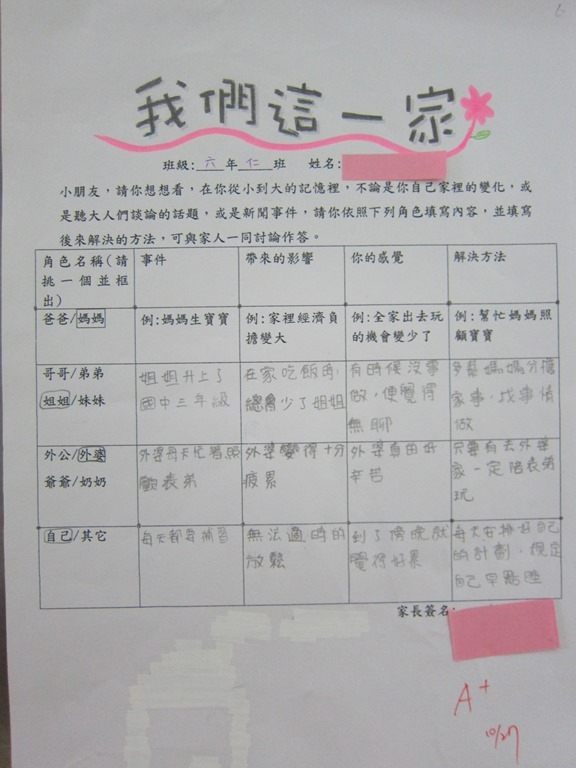 6
我們這一家
班級：六年仁班 姓名：
小朋友，請你想想看，在你從小到大的記憶裡，不論是你自己家裡的變化，或
是聽大人們談論的話題，或是新聞事件，請你依照下列角色填寫內容，並填寫
後來解決的方法，可與家人一同討論作答。
角色名稱(請
挑一個並框
出)
事件
帶來的影響
你的感覺
解決方法
爸爸/媽媽
例：媽媽生寶寶
例：家裡經濟負
擔變大
例：全家出去玩
的機會變少了
例：幫忙媽媽照
顧寶寶
哥哥/弟弟
姐姐/妹妹
姐姐升上了
國中三年級
在家吃飯時，
總會少了姐姐
有時候沒事
做，便覺得
無聊
多幫媽媽分擔
家事，找事情
做
外公/外婆
爺爺/奶奶
外婆每天忙著照
顧表弟
外婆變得十分
疲累
外婆真的好
辛苦
只要有去外婆
家一定陪表弟
玩
自己/其它
每天都要補習
無法適時的
放鬆
到了傍晚就
覺得好累
每天安排好自己
的計劃，規定
自己早點睡
家長簽名：
A+
10/27